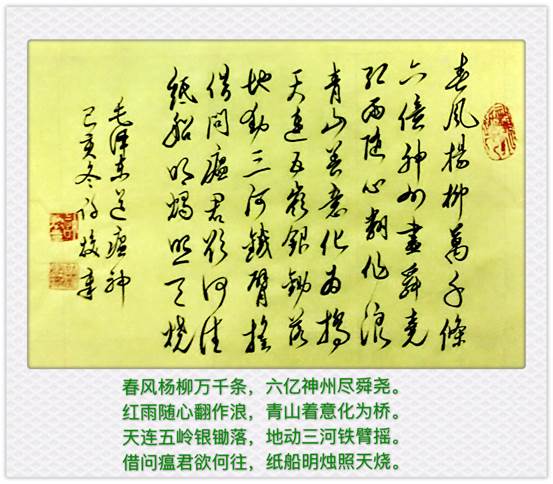 春風楊柳萬千條
六億神州盡舜堯
紅雨隨心翻作浪
青山着意化為橋
天連五嶺銀鋤落
地動三河鐵臂搖
借問瘟君欲何往
紙船明燭照天燒
毛澤東送瘟神
己亥冬
春风杨柳万千条，六亿神州尽舜尧。
红雨随心翻作浪，青山着意化为桥。
天连五岭银锄落，地动三河铁臂摇。
借问瘟君欲何往，纸船明烛照天烧。